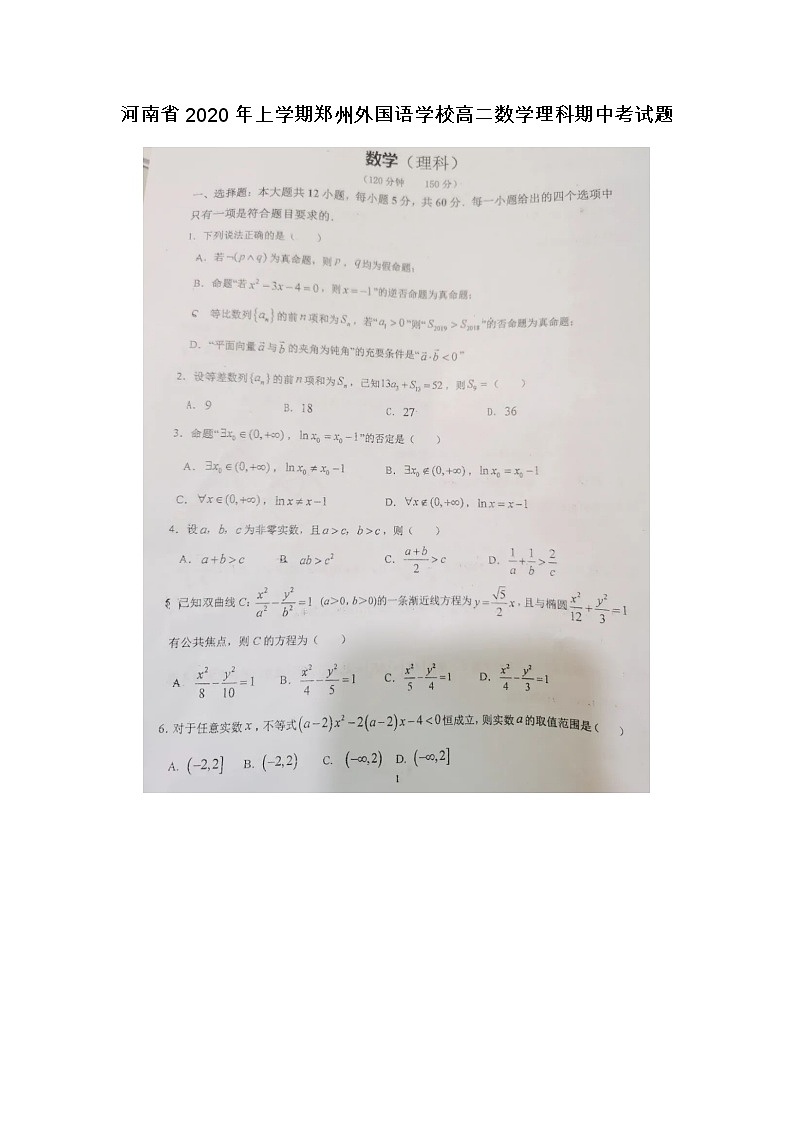 河南省 2020 年上学期郑州外国语学校高二数学理科期中考试题
数学（理科）
（120 分钟 150 分）
一、选择题：本大题共 12 小题，每小题 5 分，共 60 分．每一小题给出的四个选项中
只有一项是符合题目要求的．
1．下列说法正确的是（ ）
A．若¬(p∧q)为真命题，则 p，q 均为假命题；
B．命题“若 x²−3x−4=0，则 x=−1”的逆否命题为真命题；
C 等比数列{aₙ}的前 n 项和为 Sₙ，若“a₁>0”则“S₂₀₁₉>S₂₀₁₈”的否命题为真命题；
D．“平面向量 a⃗ 与 b⃗ 的夹角为钝角”的充要条件是“a⃗·b⃗<0”
2．设等差数列{aₙ}的前 n 项和为 Sₙ，已知13a₃+S₁₃=52，则 S₉=（ ）
A．9 B．18 C．27 D．36
3．命题“∃x₀∈(0,+∞)，ln x₀=x₀−1”的否定是（ ）
A．∃x₀∈(0,+∞)，ln x₀≠x₀−1 B．∃x₀∉(0,+∞)，ln x₀=x₀−1
C．∀x∈(0,+∞)，ln x≠x−1 D．∀x∉(0,+∞)，ln x=x−1
4．设 a，b，c 为非零实数，且 a>c，b>c，则（ ）
A．a+b>c B. ab>c² C．(a+b)/2>c D．1/a+1/b>2/c
5．已知双曲线 C：x²/a²−y²/b²=1 (a>0，b>0)的一条渐近线方程为 y=√5/2 x，且与椭圆 x²/12+y²/3=1
有公共焦点，则 C 的方程为（ ）
A x²/8−y²/10=1 B．x²/4−y²/5=1 C．x²/5−y²/4=1 D．x²/4−y²/3=1
6. 对于任意实数 x，不等式(a−2)x²−2(a−2)x−4<0恒成立，则实数 a 的取值范围是（ ）
A. (−2,2] B. (−2,2) C. (−∞,2) D. (−∞,2]
1